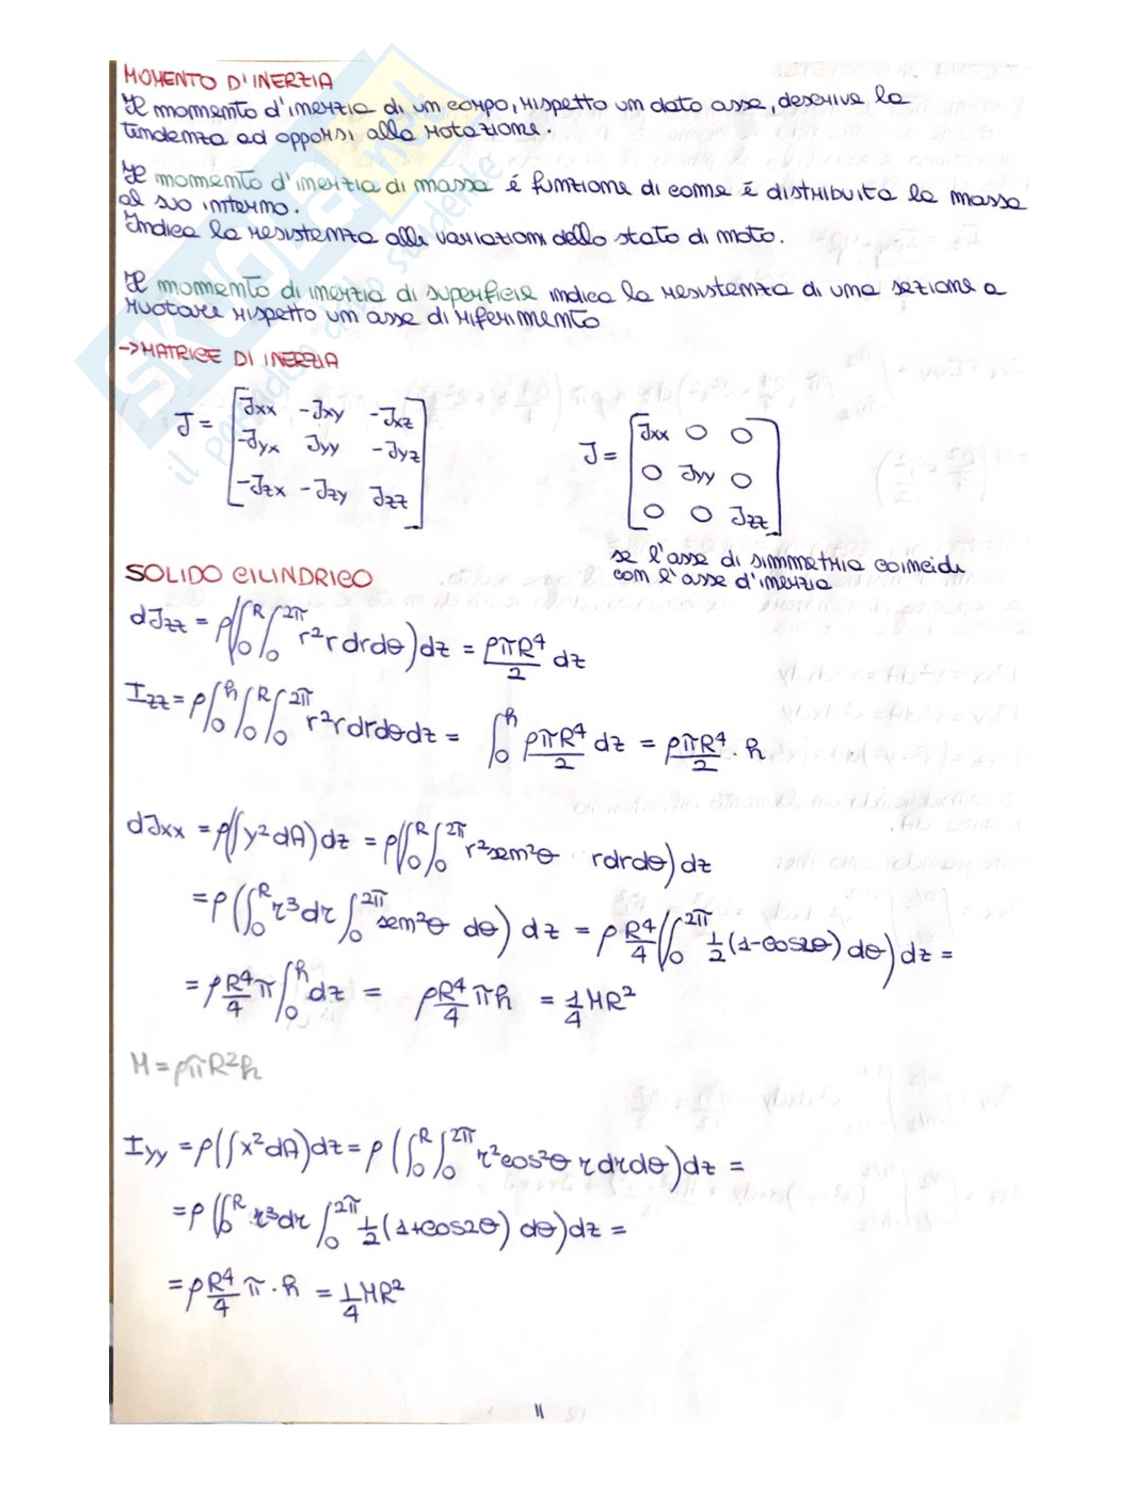 MOMENTO D'INERZIA
Il momento d'inerzia di un corpo, rispetto un dato asse, descrive la
tendenza ad opporsi alla rotazione.
Il momento d'inerzia di massa é funzione di come é distribuita la massa
al suo interno.
Indica la resistenza alle variazioni dello stato di moto.
Il momento di inerzia di superficie indica la resistenza di una sezione a
ruotare rispetto un asse di riferimento
->MATRICE DI INERZIA
J = [Jxx -Jxy -Jxz
-Jyx Jyy -Jyz
-Jzx -Jzy Jzz]
J = [Jxx 0 0
0 Jyy 0
0 0 Jzz]
se l'asse di simmetria coincide
con l'asse d'inerzia
SOLIDO CILINDRICO
dJzz = ρ(∫₀^R ∫₀^2π r² r dr dθ) dz = ρπR⁴/2 dz
Izz = ρ ∫₀^h ∫₀^R ∫₀^2π r² r dr dθ dz = ∫₀^h ρπR⁴/2 dz = ρπR⁴/2 · h
dJxx = ρ(∫y² dA) dz = ρ(∫₀^R ∫₀^2π r² sen²θ r dr dθ) dz
= ρ(∫₀^R r³ dr ∫₀^2π sen²θ dθ) dz = ρ R⁴/4 (∫₀^2π 1/2 (1-cos2θ) dθ) dz =
= ρ R⁴/4 π ∫₀^h dz = ρR⁴/4 πh = 1/4 MR²
M = ρπR²h
Iyy = ρ(∫x² dA) dz = ρ(∫₀^R ∫₀^2π r² cos²θ r dr dθ) dz =
= ρ(∫₀^R r³ dr ∫₀^2π 1/2 (1+cos2θ) dθ) dz =
= ρ R⁴/4 π · h = 1/4 MR²
11
SKUOLA.net
il paradiso dello studente